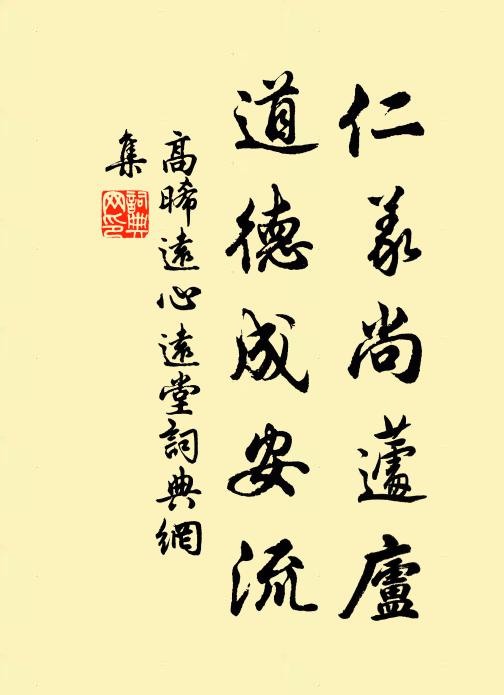 仁義尚蘧廬
道德成安流
高晞遠心遠堂詞典網
集
詞典
网印